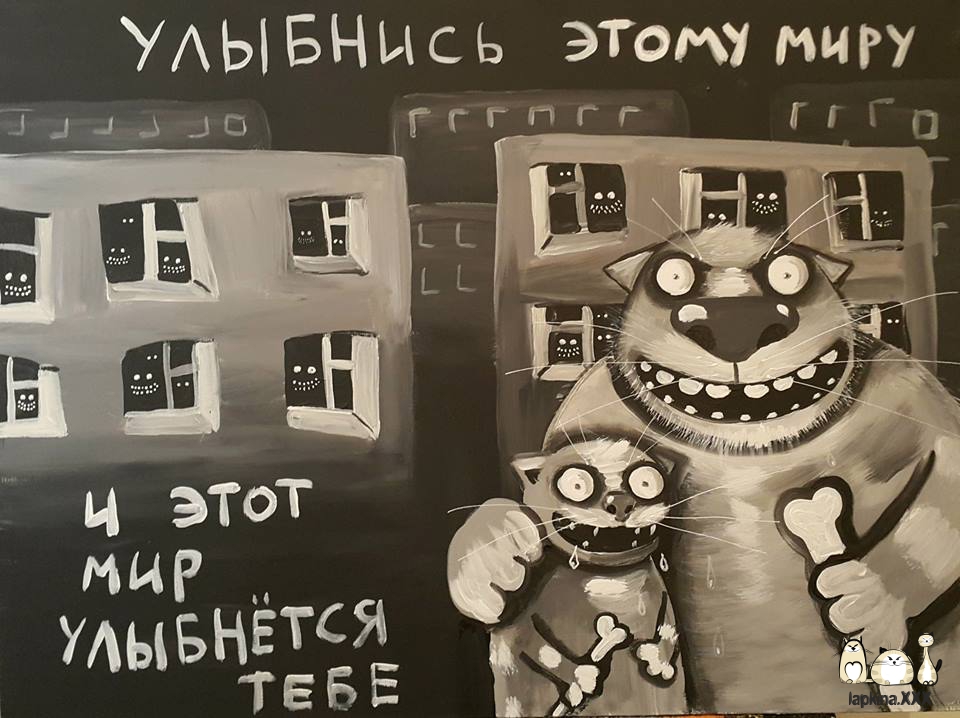 УЛЫБНИСЬ ЭТОМУ МИРУ
И ЭТОТ
МИР
УЛЫБНЁТСЯ
ТЕБЕ